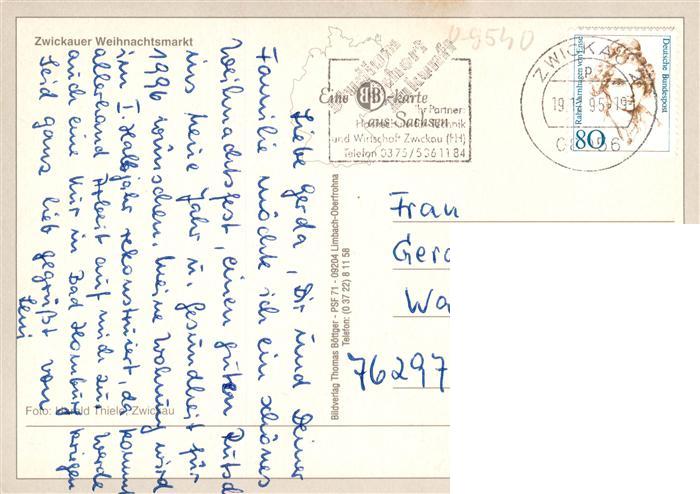 Zwickauer Weihnachtsmarkt
Liebe Gerda, Dir und Deiner
Familie möchte ich ein schönes
Weihnachtsfest, einen guten Rutsch
ins neue Jahr u. Gesundheit für
1996 wünschen. Meine Wohnung wird
im I. Halbjahr rekonstruiert, da kommt
allerhand Arbeit auf mich zu. Werde
auch eine Kur in Bad Homburg kriegen
Seid ganz lieb gegrüßt von
Leni
Foto: Harald Thiele, Zwickau
Bildverlag Thomas Böttger - PSF 71 - 09204 Limbach-Oberfrohna
Telefon: (0 37 22) 8 11 58
D-9540
Eine BTB-karte
aus Sachsen
Ihr Partner:
Technik
und Wirtschaft Zwickau (FH)
Telefon 0375/5 36 11 84
ZWICKAU
19.1 95-19
Rahel Varnhagen von Ense
Deutsche Bundespost
80
Frau
Ger
Wa
76297